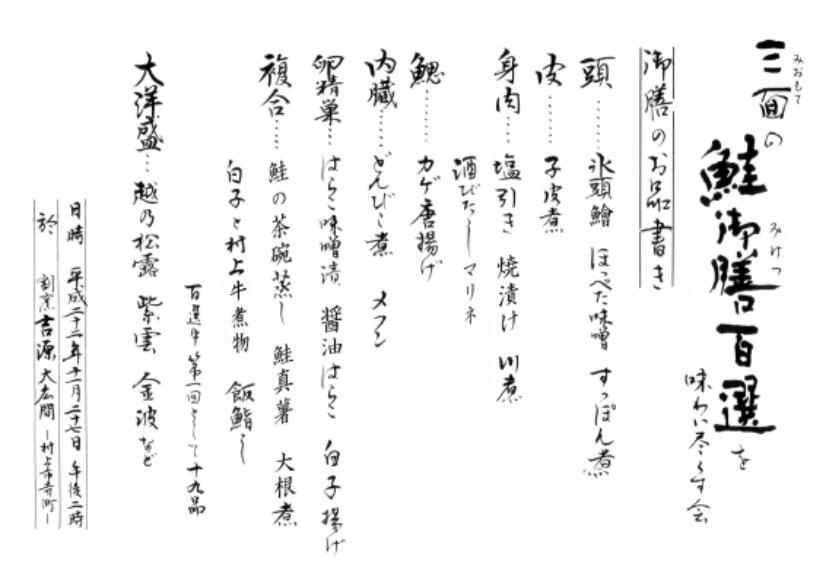 三面の
みおもて
鮭御膳百選を
みけつ
味わい尽くす会
御膳のお品書き
頭……氷頭鱠 ほっぺた味噌 すっぽん煮
皮……子皮煮
身肉……塩引き 焼漬け 川煮
酒びたし マリネ
鰓……カゲ唐揚げ
内臓……どんびこ煮 メフン
卵精巣…はらこ味噌漬 醤油はらこ 白子揚げ
複合……鮭の茶碗蒸し 鮭真薯 大根煮
白子と村上牛煮物 飯鮨し
百選中第一回として十九品
大洋盛…越乃松露 紫雲 金波など
日時 平成二十二年十一月二十七日 午後二時
於 割烹吉源大広間 ー村上市寺町ー